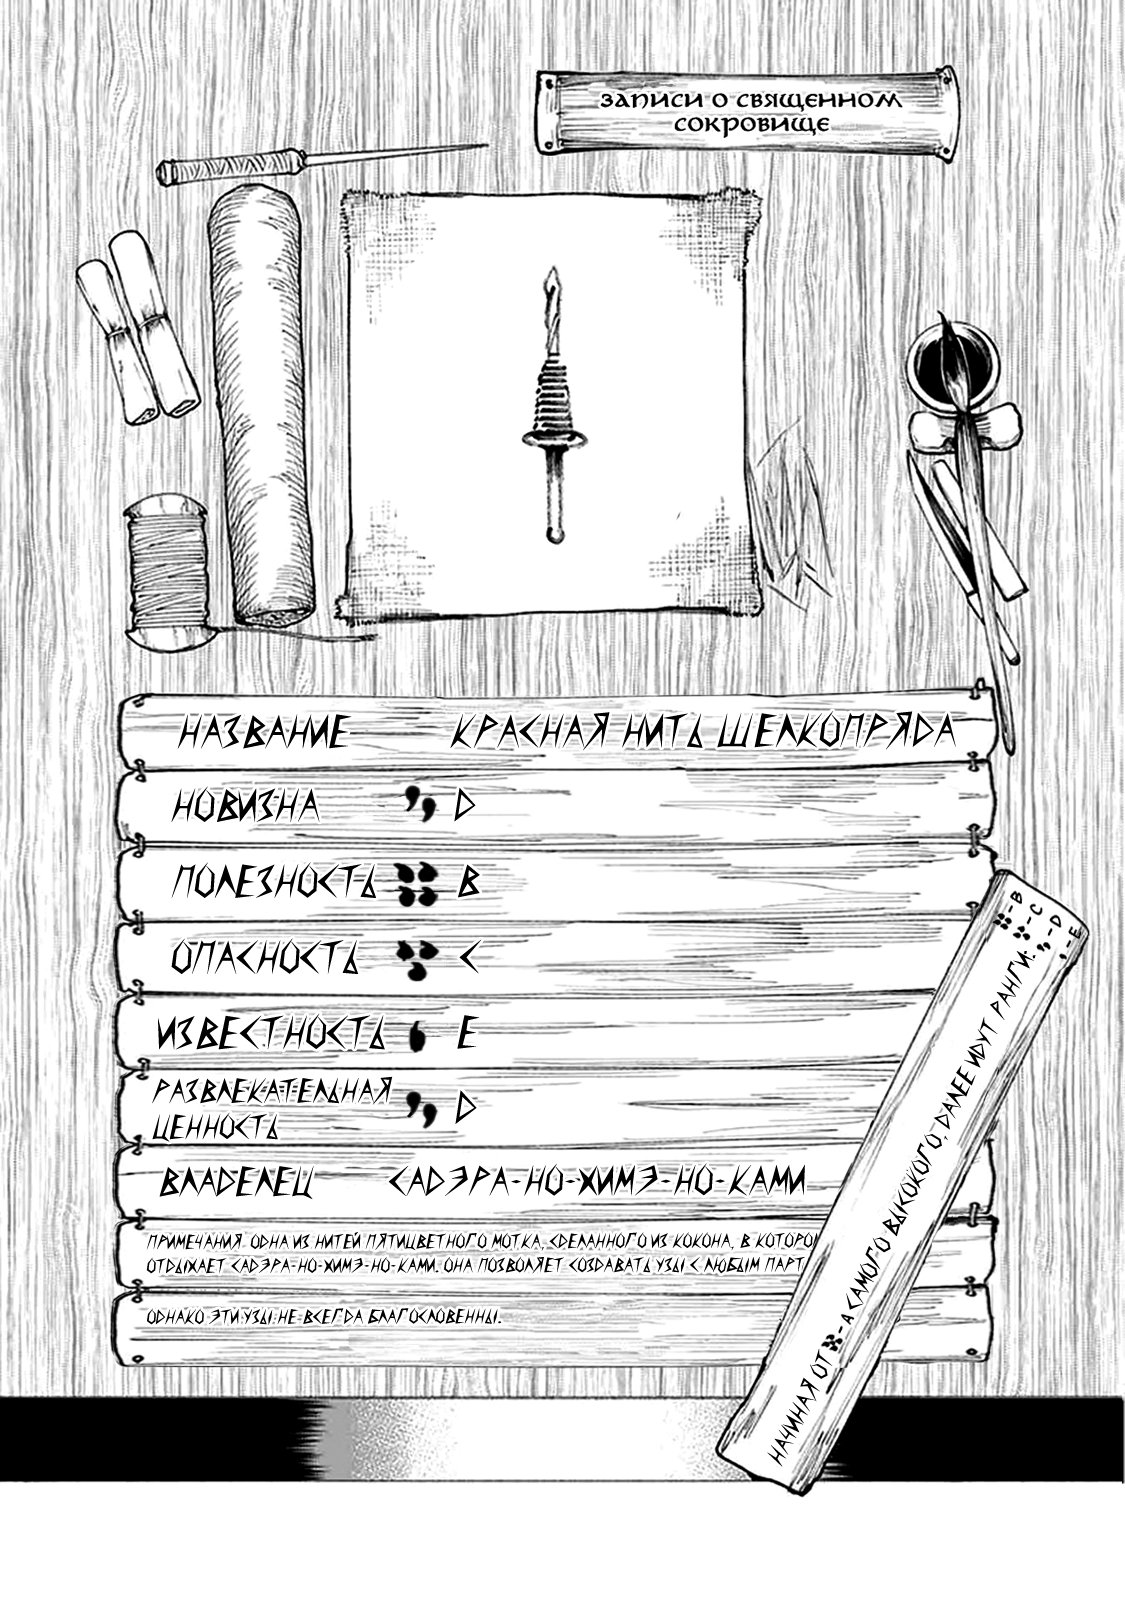 ЗАПИСИ О СВЯЩЕННОМ
СОКРОВИЩЕ
НАЗВАНИЕ КРАСНАЯ НИТЬ ШЕЛКОПРЯДА
НОВИЗНА D
ПОЛЕЗНОСТЬ B
ОПАСНОСТЬ C
ИЗВЕСТНОСТЬ E
РАЗВЛЕКАТЕЛЬНАЯ
ЦЕННОСТЬ D
ВЛАДЕЛЕЦ САДЭРА-НО-ХИМЭ-НО-КАМИ
ПРИМЕЧАНИЯ. ОДНА ИЗ НИТЕЙ ПЯТИЦВЕТНОГО МОТКА, СДЕЛАННОГО ИЗ КОКОНА, В КОТОРО
ОТДЫХАЕТ САДЭРА-НО-ХИМЭ-НО-КАМИ. ОНА ПОЗВОЛЯЕТ СОЗДАВАТЬ УЗЫ С ЛЮБЫМ ПАРТ
ОДНАКО ЭТИ УЗЫ НЕ ВСЕГДА БЛАГОСЛОВЕННЫ.
НАЧИНАЯ ОТ - А САМОГО ВЫСОКОГО, ДАЛЕЕ ИДУТ РАНГИ:
-B
-C
-D
-E